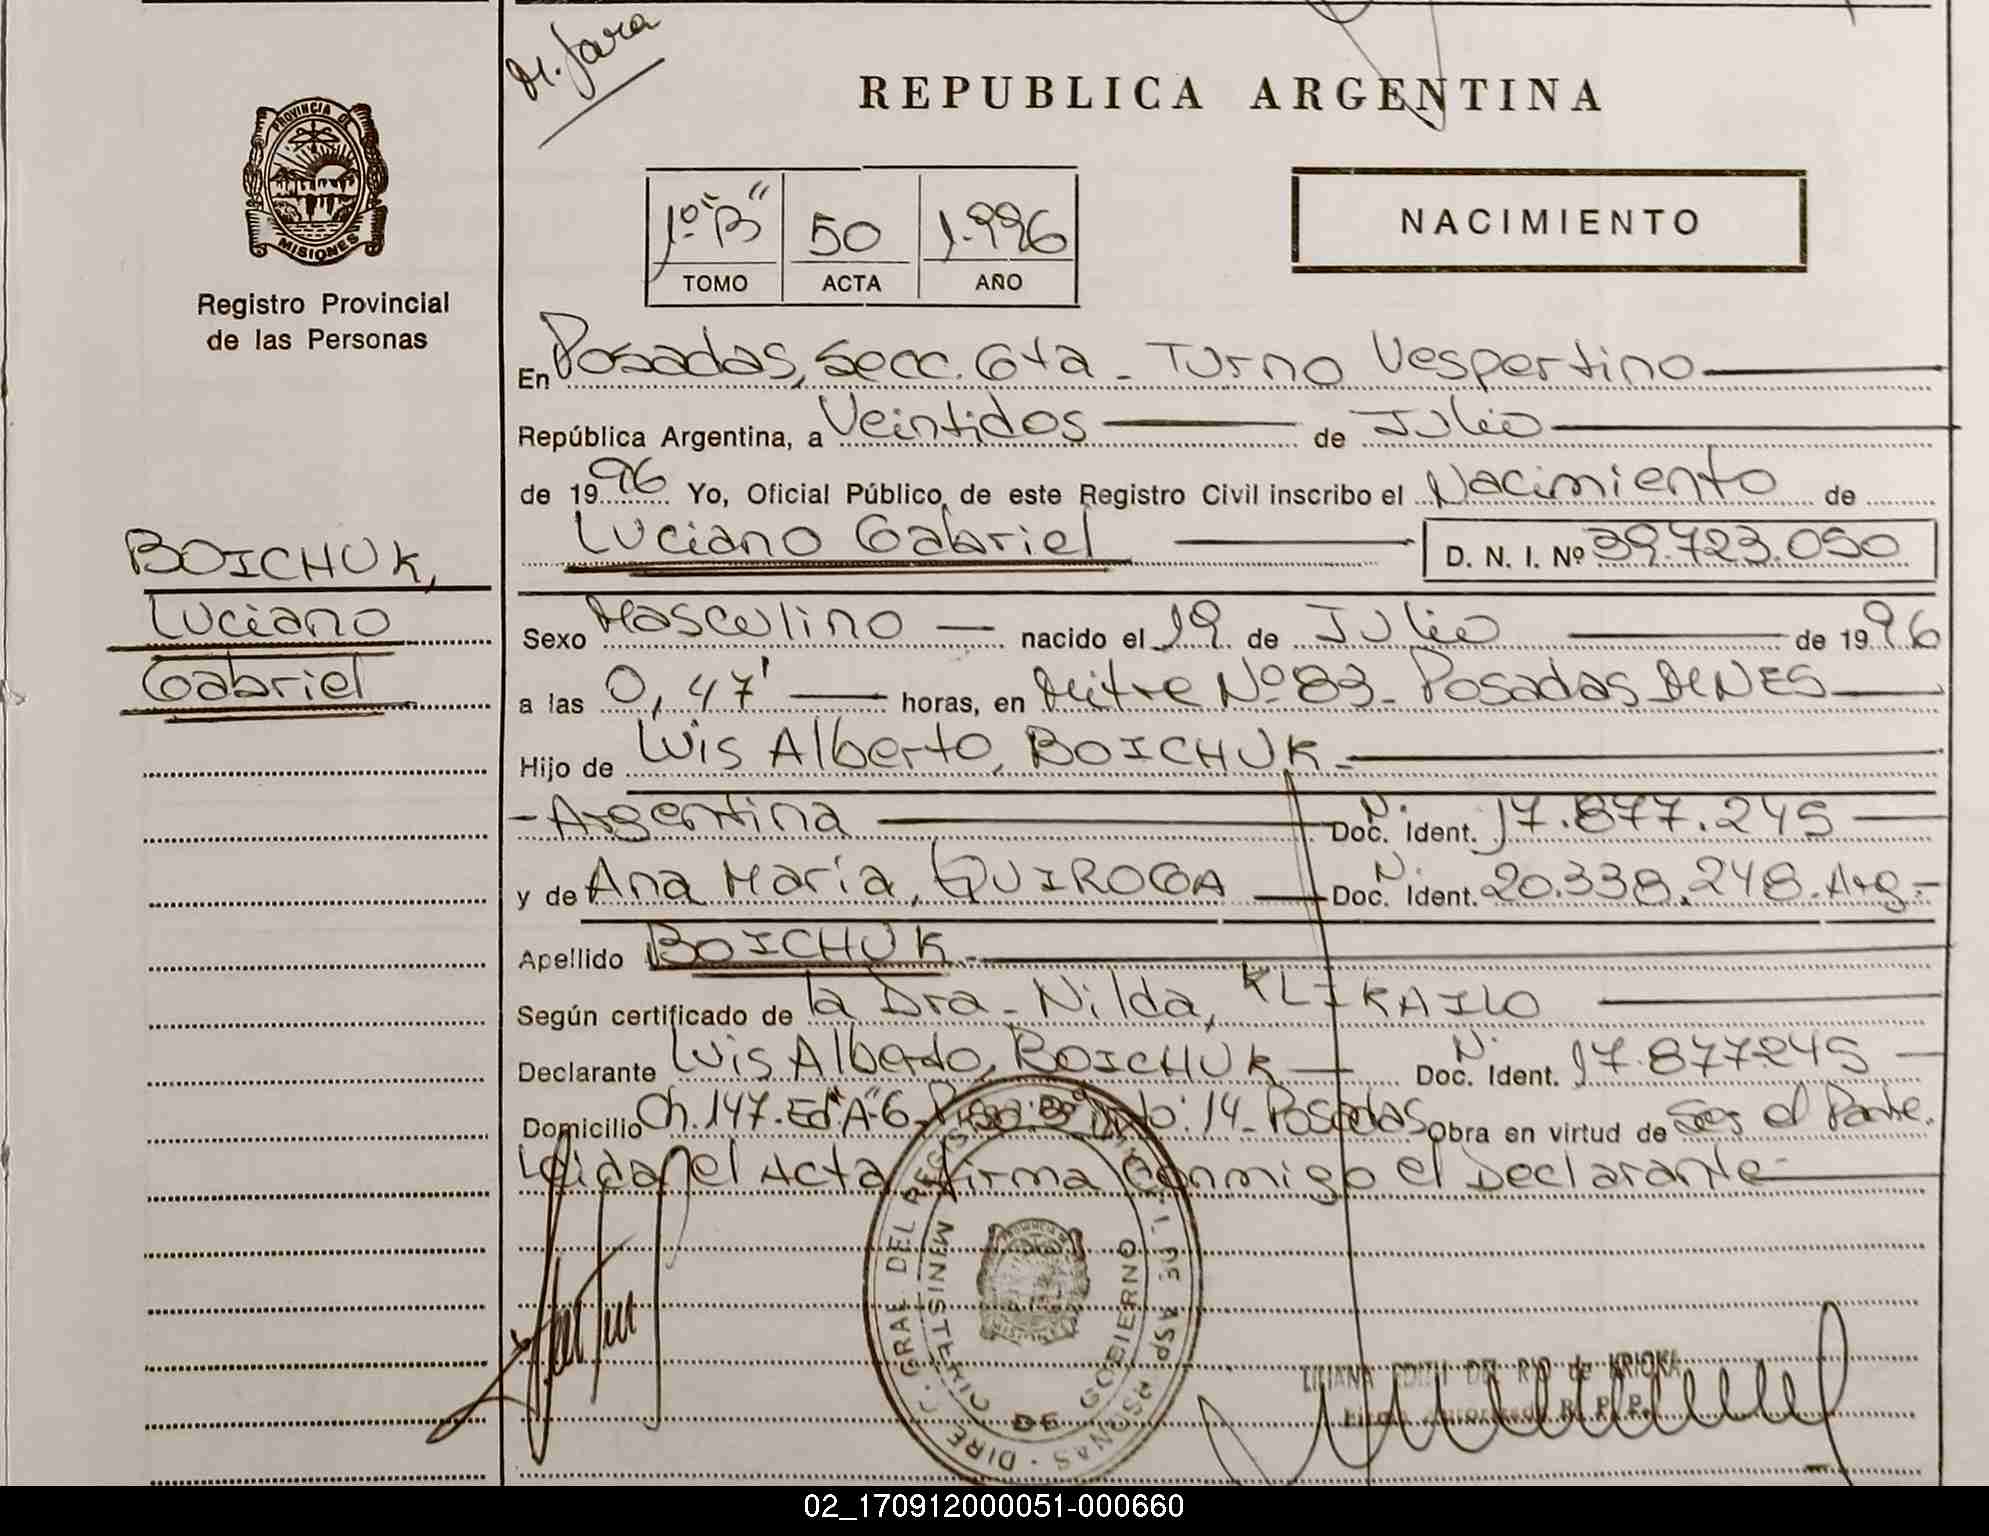 M. Jara
REPUBLICA ARGENTINA
PROVINCIA DE
MISIONES
Registro Provincial
de las Personas
1º "B" 50 1.996
TOMO ACTA AÑO
NACIMIENTO
En Posadas, Secc. 6ta - Turno Vespertino
República Argentina, a Veintidos de Julio
de 1996 Yo, Oficial Público, de este Registro Civil inscribo el Nacimiento de
Luciano Gabriel D. N. I. Nº 39.723.050
BOICHUK,
Luciano
Gabriel
Sexo Masculino - nacido el 19 de Julio de 1996
a las 0,47' horas, en Mitre Nº 83- Posadas MNES
Hijo de Luis Alberto, BOICHUK-
- Argentina N. Doc. Ident. 17.877.245
y de Ana María, QUIROGA N. Doc. Ident. 20.338.248. Arg-
Apellido BOICHUK-
Según certificado de la Dra- Nilda, KLIKAILO
Declarante Luis Alberto, BOICHUK N. Doc. Ident. 17.877.245
Domicilio Ch. 147. Ed "A"-6- Piso: 3º Dpto: 14- Posadas Obra en virtud de Ser el Padre.
Leida el Acta firma conmigo el Declarante-
GRAL DEL
MINIST
DE GOBIERNO
LILIANA EDITH DEL RIO de KRIOKA
R. P. P.
02_170912000051-000660